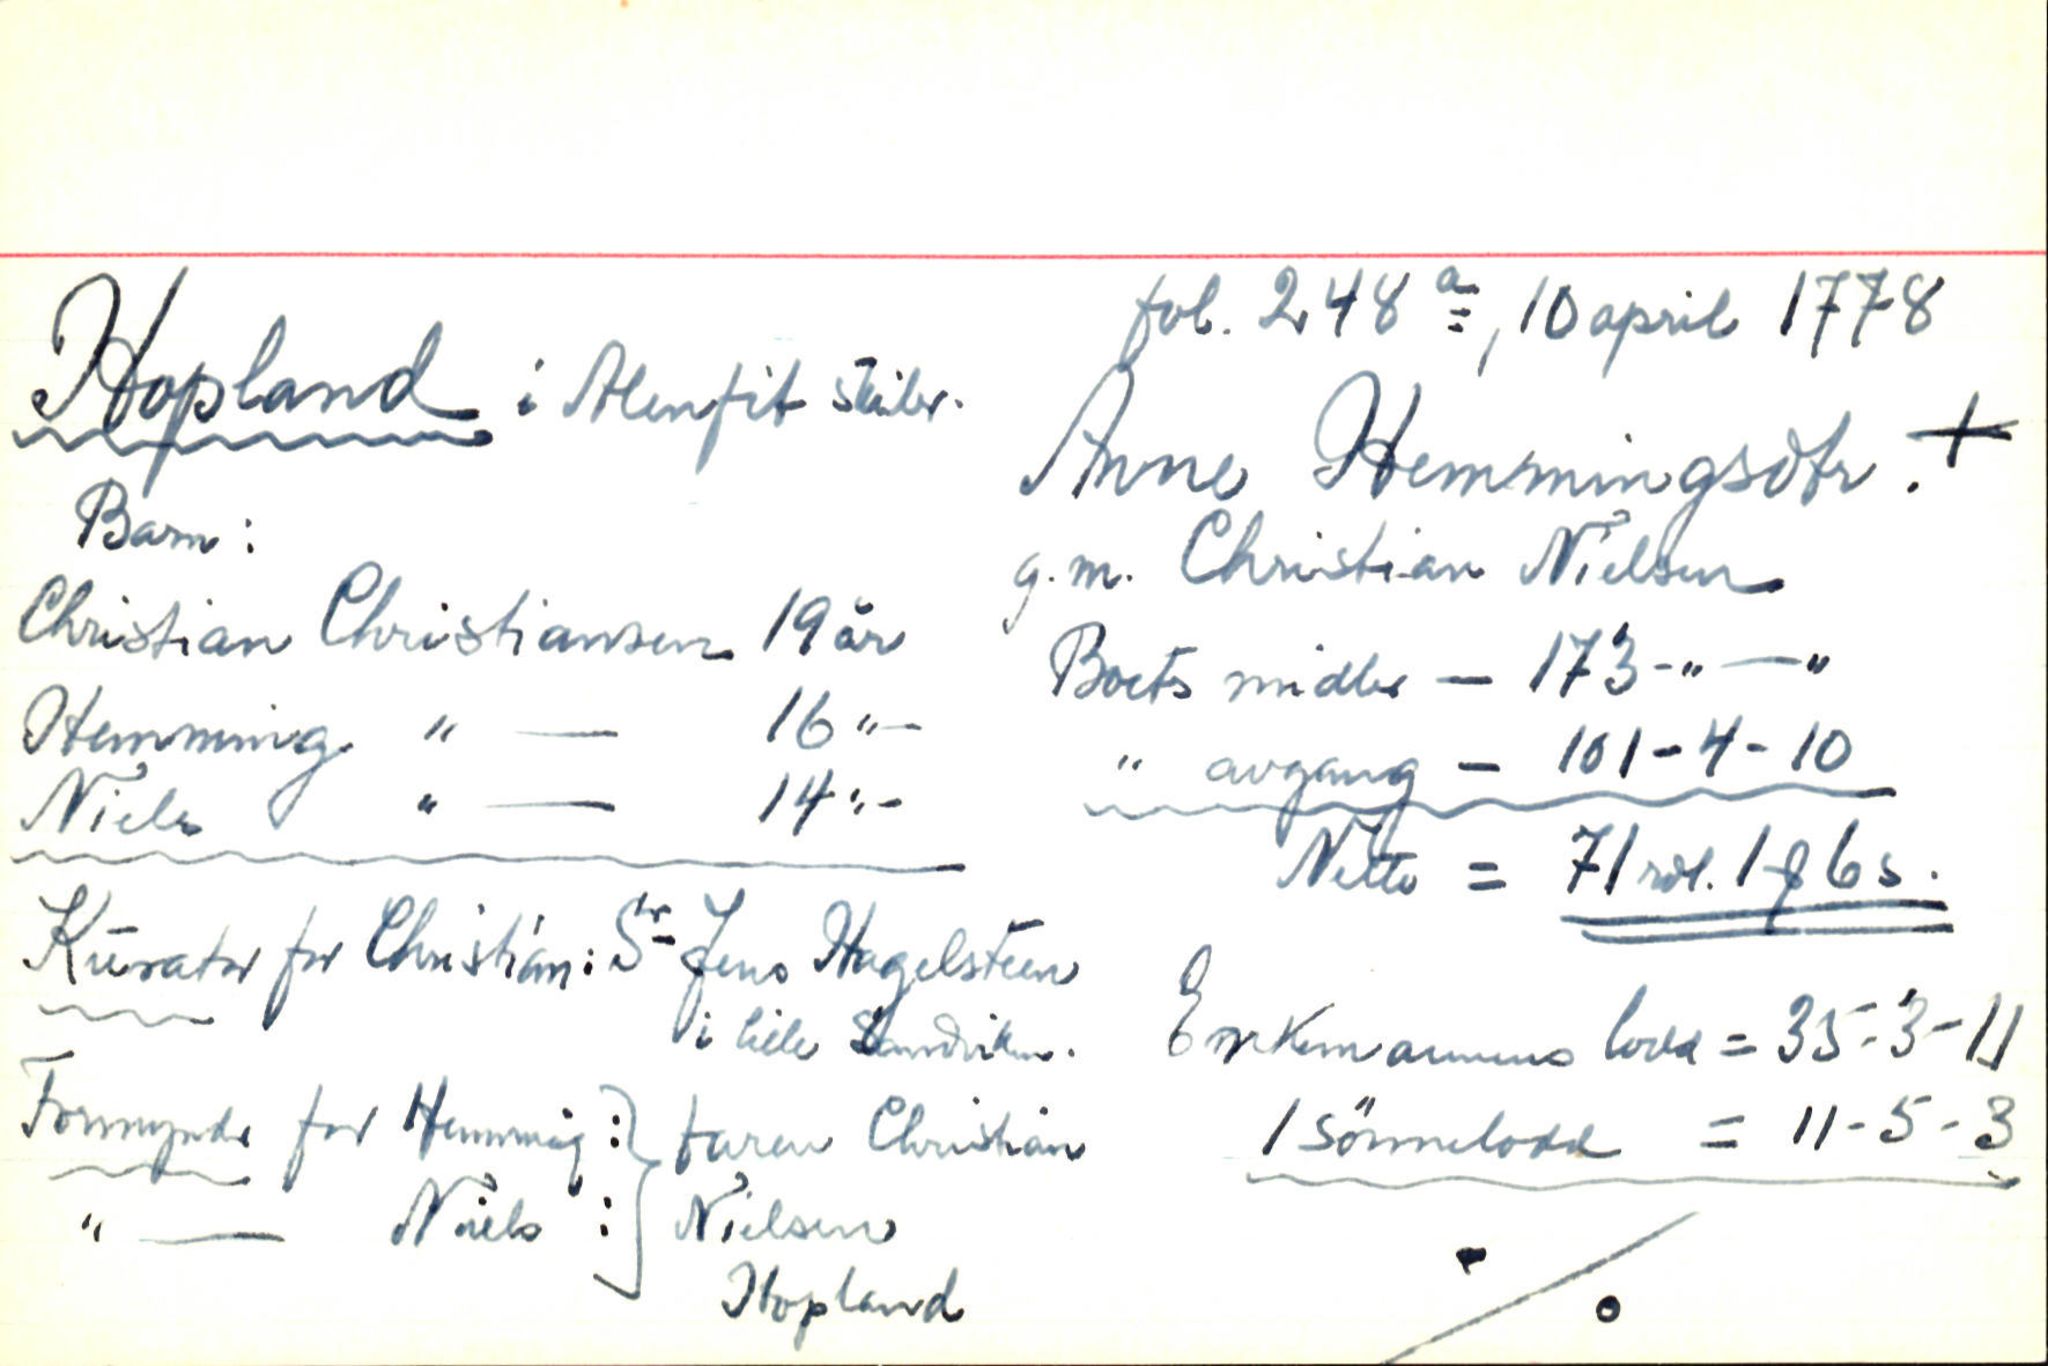 fol. 248 a, 10 april 1778
Hopland i Alenfit skibr.
Anne Hemmingsdtr. +
g.m. Christian Nielsen
Boets midler — 173-"—"
" avgang — 101-4-10
Netto = 71 rdl. 1 ƒ 6 s.
Enkemannens lodd = 35-3-11
1 sönnelodd = 11-5-3
Barn:
Christian Christiansen 19 år
Hemming " — 16 "-
Niels " — 14 "-
Kurator for Christian: Sr Jens Hagelsteen
i lille Sandviken.
Formynder for Hemming : } faren Christian
" — Niels : } Nielsen
Hopland